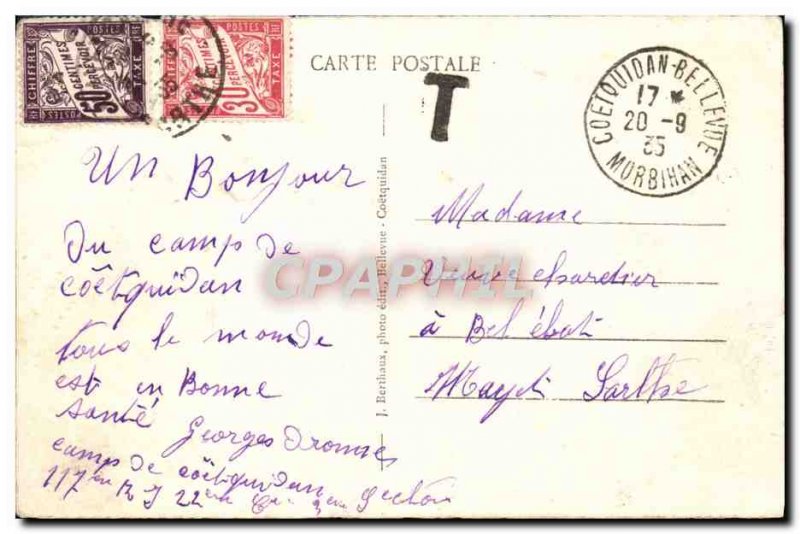 POSTES
CHIFFRE TAXE
50 CENTIMES À PERCEVOIR
POSTES
30 CENTIMES À PERCEVOIR
TAXE
CARTE POSTALE
T
COETQUIDAN-BELLEVUE
17 *
20 -9
35
MORBIHAN
Un Bonjour
Du camp de
côetquidan
tous le monde
est en Bonne
santé
Georges Dronne
camp de côetquidan
117 22 section
J. Berthaux, photo édit., Bellevue - Coëtquidan
Madame
Veuve chardier
à Bel ébat
Mayet Sarthe
CPAPHIL